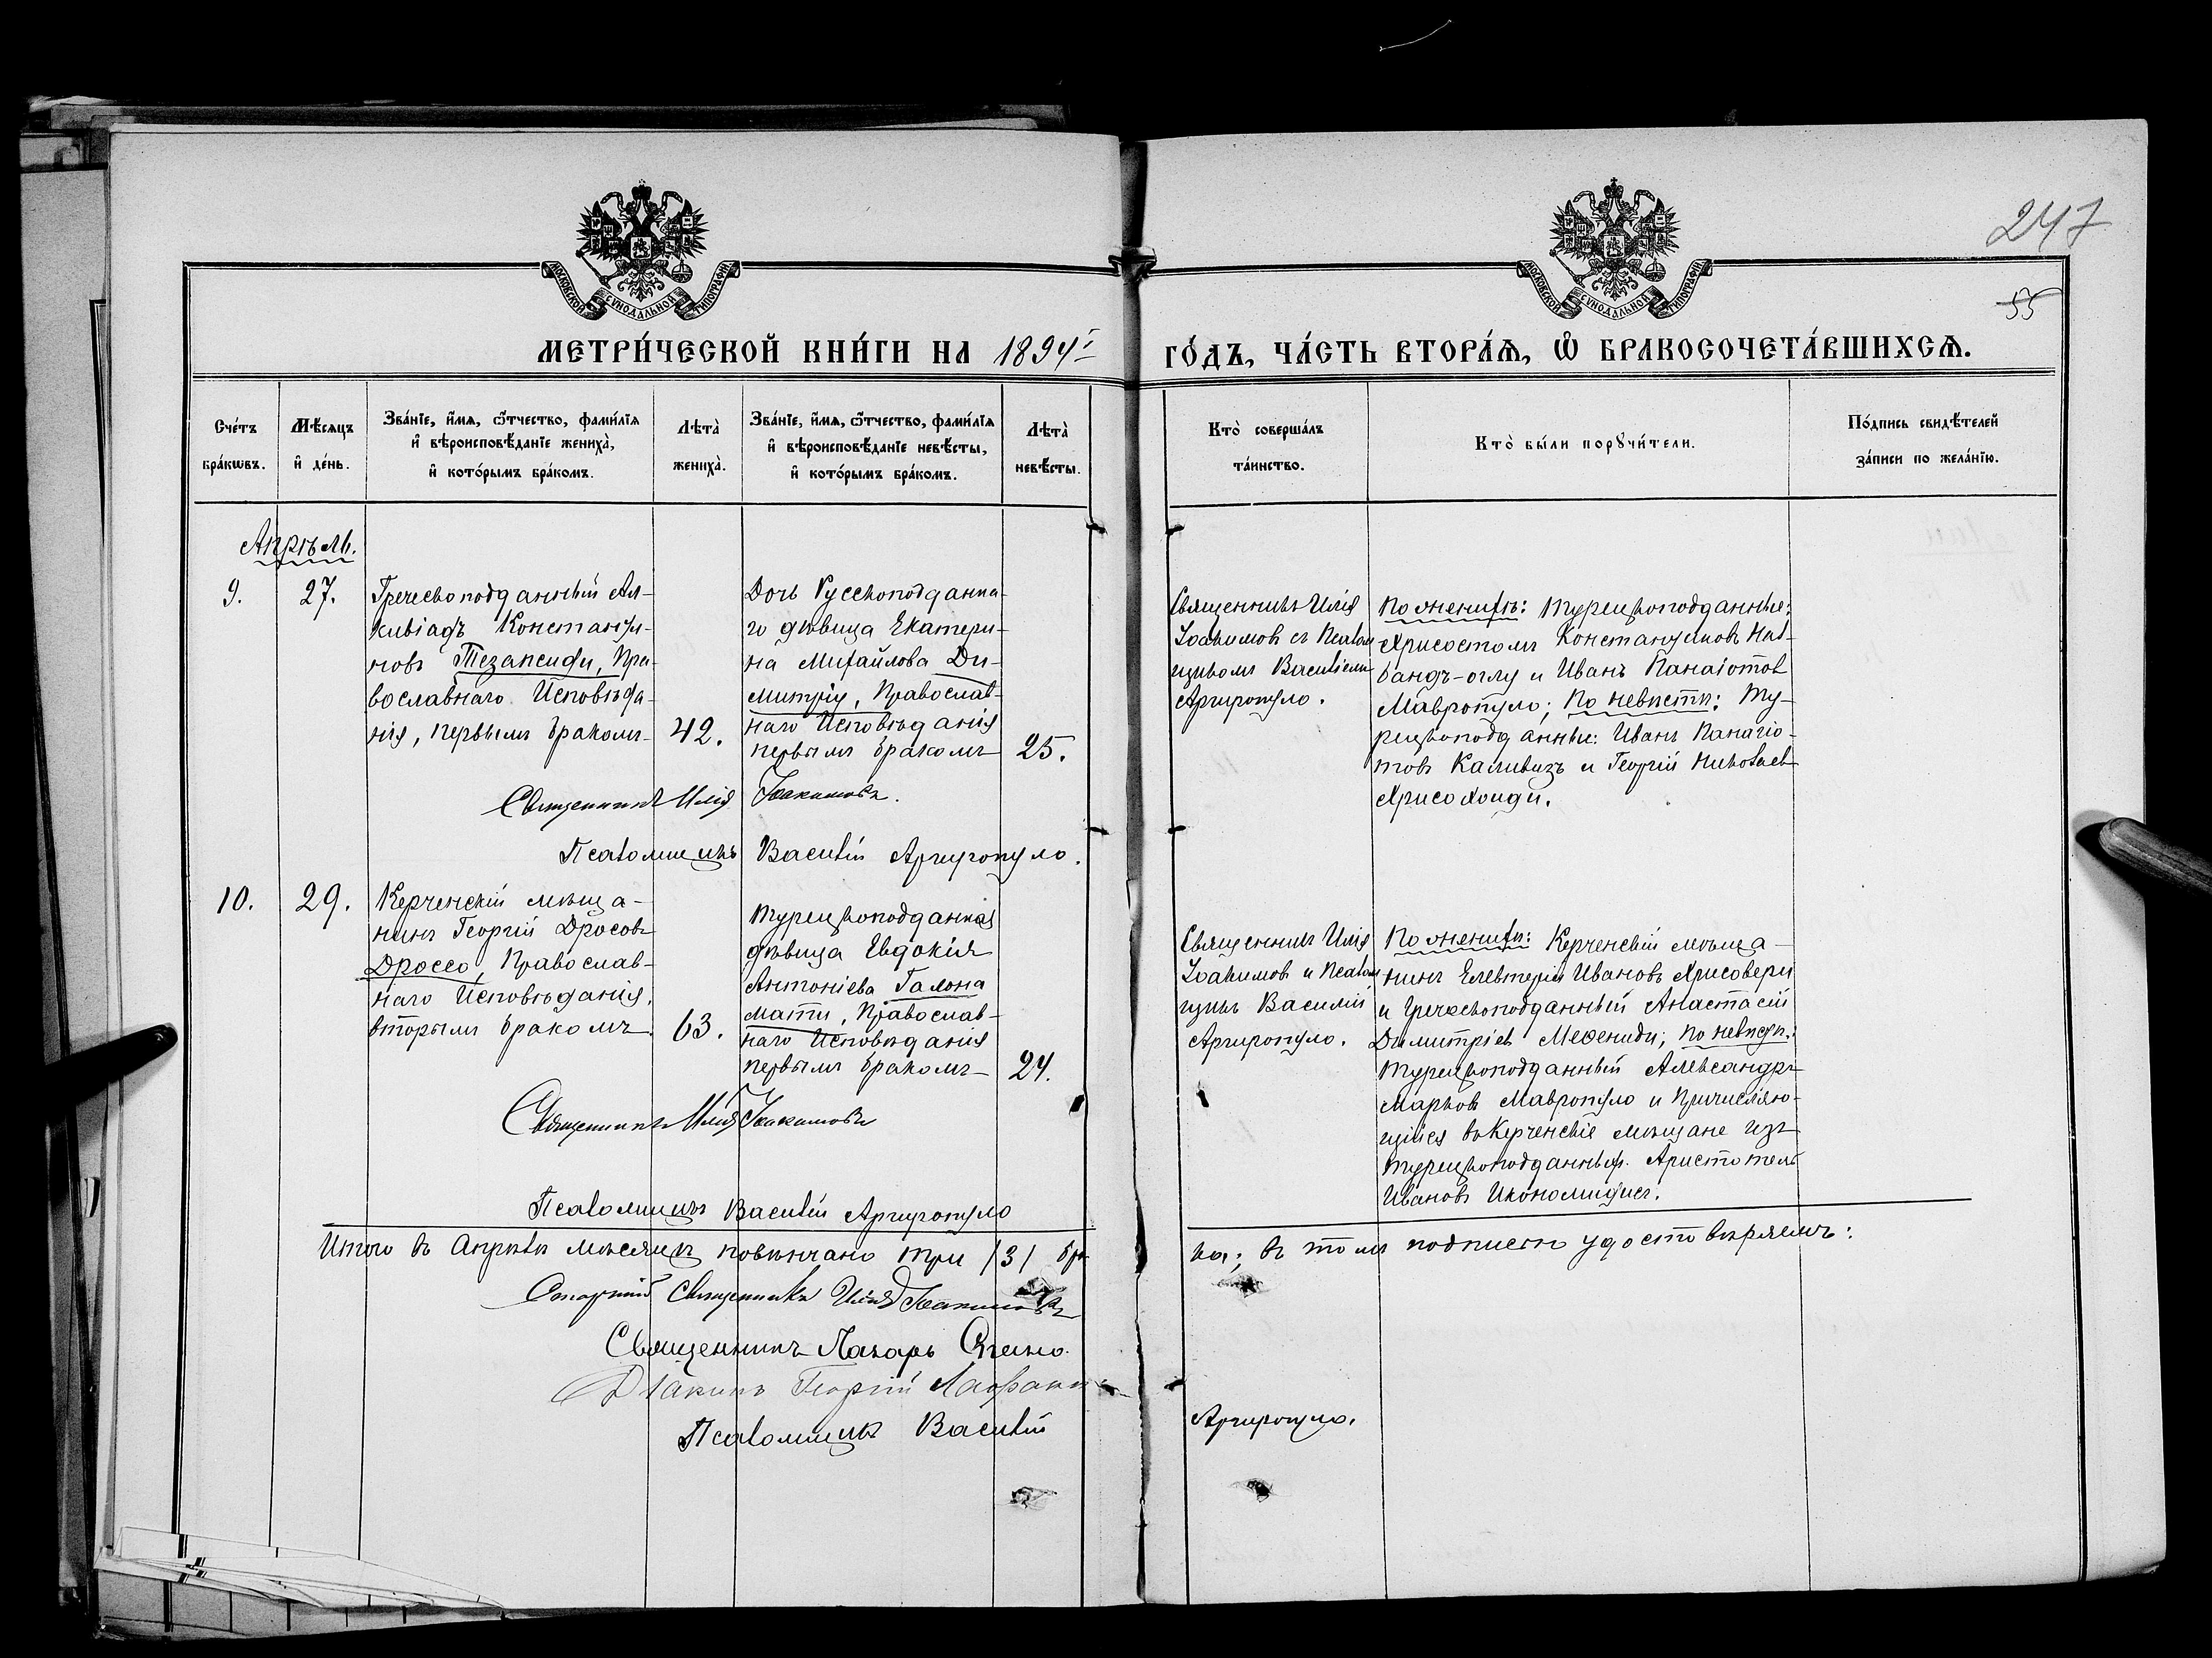 247
55
МОСКОВСКОЙ СѴНОДАЛЬНОЙ ТИПОГРАФІИ
МОСКОВСКОЙ СѴНОДАЛЬНОЙ ТИПОГРАФІИ
МЕТРИ́ЧЕСКОЙ КНИ́ГИ НА 1894й ГО́ДЪ, ЧА́СТЬ ВТОРА́Ѧ, Ѽ БРАКОСОЧЕТА́ВШИХСѦ.
Сче́тъ
бра́кѡвъ.
Мѣ́сѧцъ
и҆ де́нь.
Зва́нїе, и҆́мѧ, ѻ҆́тчество, фами́лїѧ
и҆ вѣроисповѣ́данїе жениха̀,
и҆ кото́рымъ бра́комъ.
Лѣта̀
жениха̀.
Зва́нїе, и҆́мѧ, ѻ҆́тчество, фами́лїѧ
и҆ вѣроисповѣ́данїе невѣ́сты,
и҆ кото́рымъ бра́комъ.
Лѣта̀
невѣ́сты.
Кто̀ соверша́лъ
та́инство.
Кто̀ бы́ли порꙋчи́тели.
По́дпись свидѣ́телей
за́писи по жела́нїю.
Апрѣль.
9.
27.
Греческоподданный Ал-
кивіадъ Константи-
новъ Тезапсиди, Пра-
вославнаго Исповѣда-
нія, первымъ бракомъ
42.
Дочь Русскоподданна-
го дѣвица Екатери-
на Михайлова Ди-
митріу, Православ-
наго Исповѣданія
первымъ бракомъ
25.
Священникъ Илія
Іоакимовъ съ Псалом
щикомъ Василіемъ
Аргиропуло.
По женихѣ: Турецкоподданные:
Хрисостомъ Константиновъ Нал-
бандъ-оглу и Иванъ Панаіотов
Мавропуло; По невѣстѣ: Ту-
рецкоподданные: Иванъ Панагіо-
товъ Каливазъ и Георгій Николаев
Хрисохоиди.
Священникъ Илія Іоакимовъ.
Псаломщикъ Василій Аргиропуло.
10.
29.
Керченскій мѣща-
нинъ Георгій Дросовъ
Дроссо, Православ-
наго Исповѣданія,
вторымъ бракомъ.
63.
Турецкоподданная
дѣвица Евдокія
Антоніева Галона
мати, Православ-
наго Исповѣданія
первымъ бракомъ
24.
Священникъ Илія
Іоакимов и Псалом
щикъ Василій
Аргиропуло.
По женихѣ: Керченскій мѣща-
нинъ Елевтерій Ивановъ Хрисовери
и Греческоподданный Анастасій
Димитріев Меѳениди; по невѣстѣ:
Турецкоподданный Александръ
Марков Мавропуло и Причисляю-
щійся въ Керченскіе мѣщане изъ
турецкоподданныхъ Аристотель
Ивановъ Икономидис.
Священникъ Илія Іоакимовъ
Псаломщикъ Василій Аргиропуло
Итого въ Апрѣлѣ мѣсяцѣ повѣнчано три /3/ бра
ка; въ томъ подписью удостовѣряемъ:
Старшій Священникъ Илія Іоакимовъ
Священникъ Лазарь
Діаконъ Георгій
Псаломщикъ Василій Аргиропуло.